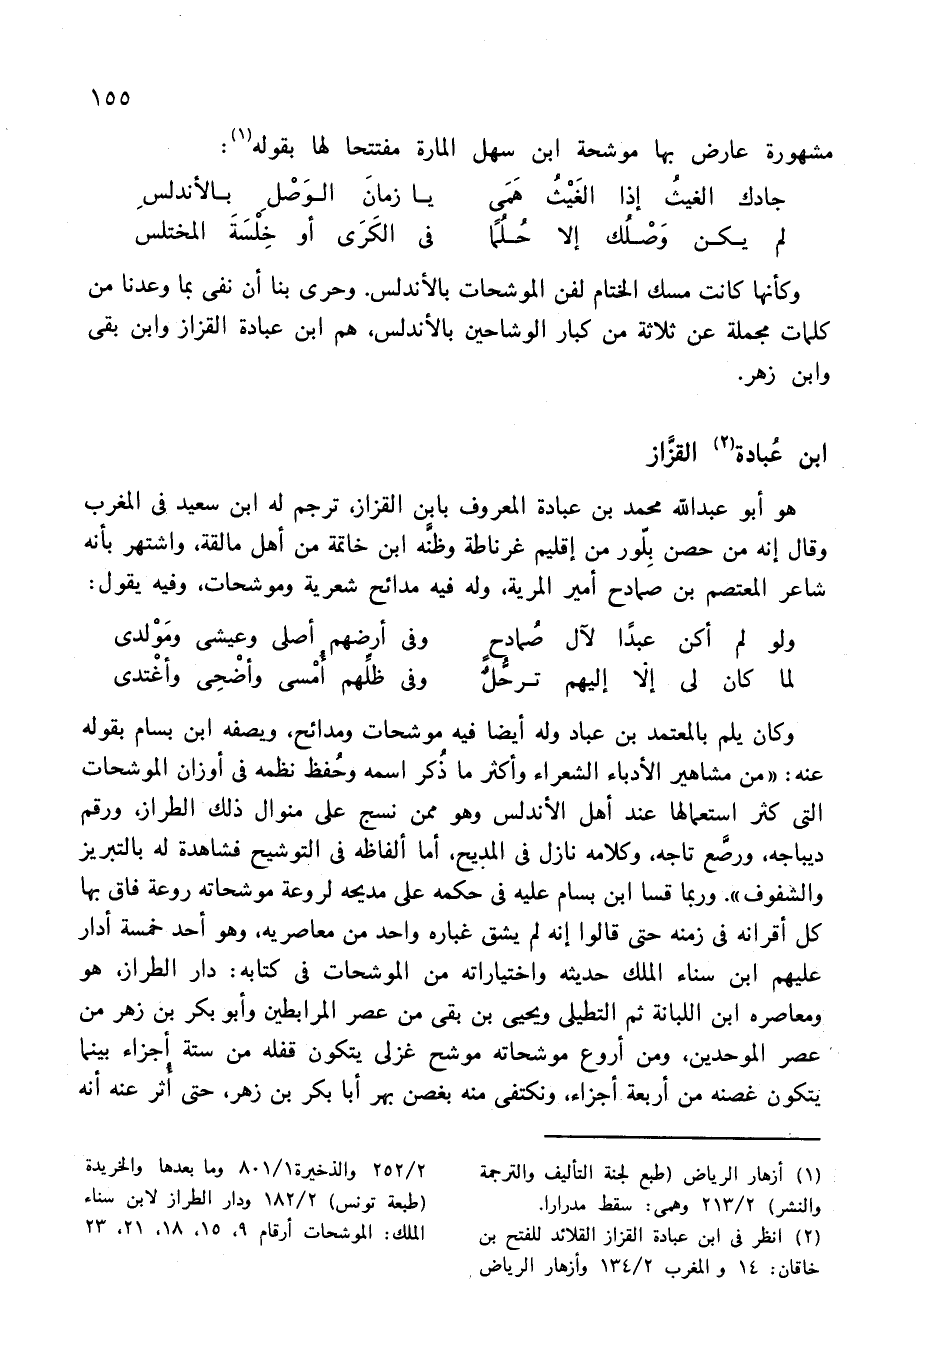 ١٥٥
مشهورة عارض بها موشحة ابن سهل المارة مفتتحا لها بقوله(١):
جادك الغيثُ إذا الغَيْثُ هَمَى يا زمانَ الوَصْلِ بالأندلسِ
لم يكن وَصْلُك إلا حُلُمًا فى الكَرَى أو خِلْسَةَ المختلس
وكأنها كانت مسك الختام لفن الموشحات بالأندلس. وحرى بنا أن نفى بما وعدنا من
كلمات مجملة عن ثلاثة من كبار الوشاحين بالأندلس، هم ابن عبادة القزاز وابن بقى
وابن زهر.
ابن عُبادة(٢) القزَّاز
هو أبو عبدالله محمد بن عبادة المعروف بابن القزاز، ترجم له ابن سعيد فى المغرب
وقال إنه من حصن بِلّور من إقليم غرناطة وظنَّه ابن خاتمة من أهل مالقة، واشتهر بأنه
شاعر المعتصم بن صمادح أمير المرية، وله فيه مدائح شعرية وموشحات، وفيه يقول:
ولو لم أكن عبدًا لآل صُمادحٍ وفى أرضهم أصلى وعيشى ومَوْلدى
لما كان لى إلّا إليهم ترحُّلٌ وفى ظلِّهم أُمْسى وأضْحِى وأغْتدى
وكان يلم بالمعتمد بن عباد وله أيضا فيه موشحات ومدائح، ويصفه ابن بسام بقوله
عنه: «من مشاهير الأدباء الشعراء وأكثر ما ذُكر اسمه وحُفظ نظمه فى أوزان الموشحات
التى كثر استعمالها عند أهل الأندلس وهو ممن نسج على منوال ذلك الطراز، ورقم
ديباجه، ورصَّع تاجه، وكلامه نازل فى المديح، أما ألفاظه فى التوشيح فشاهدة له بالتبريز
والشفوف». وربما قسا ابن بسام عليه فى حكمه على مديحه لروعة موشحاته روعة فاق بها
كل أقرانه فى زمنه حتى قالوا إنه لم يشق غباره واحد من معاصريه، وهو أحد خمسة أدار
عليهم ابن سناء الملك حديثه واختياراته من الموشحات فى كتابه: دار الطراز، هو
ومعاصره ابن اللبانة ثم التطيلى ويحيى بن بقى من عصر المرابطين وأبو بكر بن زهر من
عصر الموحدين، ومن أروع موشحاته موشح غزلى يتكون قفله من ستة أجزاء بينما
يتكون غصنه من أربعة أجزاء، ونكتفى منه بغصن بهر أبا بكر بن زهر، حتى أُثر عنه أنه
(١) أزهار الرياض (طبع لجنة التأليف والترجمة
والنشر) ٢١٣/٢ وهمى: سقط مدرارا.
(٢) انظر فى ابن عبادة القزاز القلائد للفتح بن
خاقان: ١٤ و المغرب ١٣٤/٢ وأزهار الرياض
٢٥٢/٢ والذخيرة٨٠١/١ وما بعدها والخريدة
(طبعة تونس) ١٨٢/٢ ودار الطراز لابن سناء
الملك: الموشحات أرقام ٩، ١٥، ١٨، ٢١، ٢٣